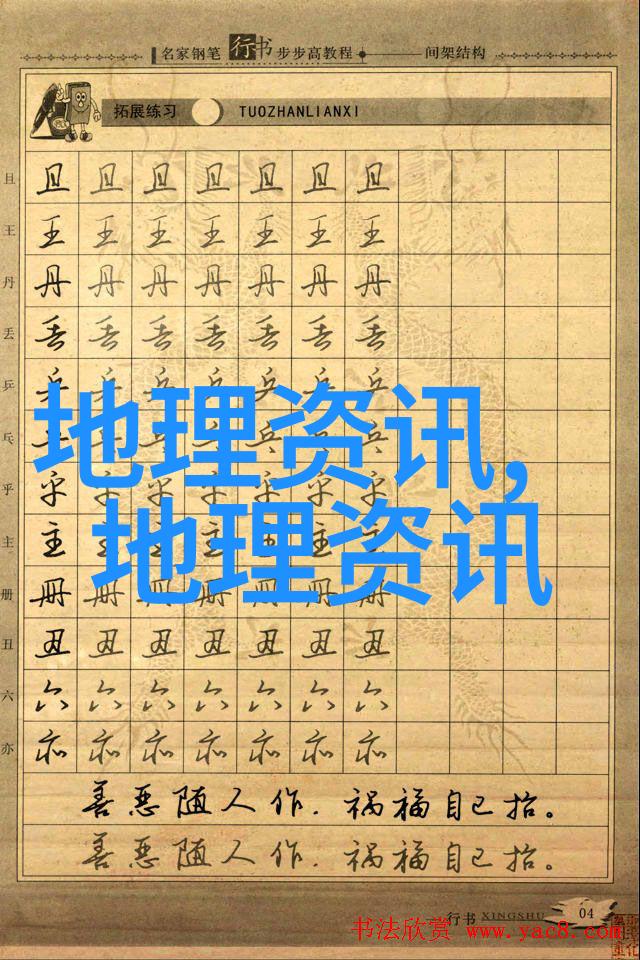 名家钢笔行书步步高教程 间架结构
拓展练习 TUOZHANLIANXI
且 且 且 且 且 且 且 且
王 王 王 王 王 王 王 王
丹 丹 丹 丹 丹 丹 丹 丹
丢 丢 丢 丢 丢 丢 丢 丢
乒 乒 乒 乒 乒 乒 乒 乒
地理资讯,
乓 乓 乓 乓 乓 乓 乓 乓
乎 乎 乎 乎 乎 乎 乎 乎
地理资讯
主 主 主 主 主 主 主 主
册 册 册 册 册 册 册 册
丑 丑 丑 丑 丑 丑 丑 丑
六 六 六 六 六 六 六 六
亦 亦 亦 亦 亦 亦 亦 亦
善恶随人作.祸福自己招。
善恶随人作.祸福自己招。
行书 XINGSHU 04
书法欣赏 www.yac8.com